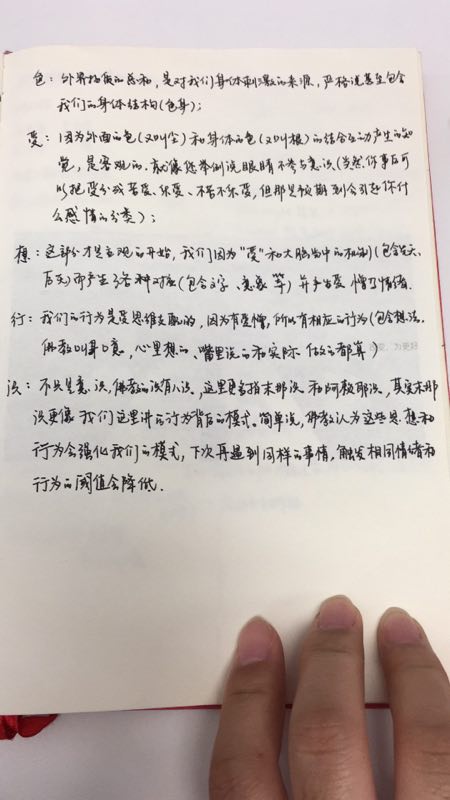 色：外界物质的总和，是对我们身体刺激的来源，严格说甚至包含
我们的身体结构(色身)；
受：因为外面的色(又叫尘)和身体的色(又叫根)的结合互动产生的知
觉，是客观的。就像您举例说眼睛不参与意识(当然你事后可
以把受分成苦受、乐受、不苦不乐受，但那是预期到会引起你什
么感情的分类)；
想：这部分才是主观的开始，我们因为"受"和大脑当中的机制(包含先天、
后天)而产生了各种对应(包含文字、意象等)并产生爱憎等情绪.
行：我们的行为是受思维支配的，因为有爱憎，所以有相应的行为(包含想法，
佛教叫身口意，心里想的、嘴里说的和实际做的都算)
改变，为更好
识：不只是意识，佛教的识有八识，这里更多指末那识和阿赖耶识，其实末那
识更像我们这里讲的行为背后的模式。简单说，佛教认为这些思想和
行为会强化我们的模式，下次再遇到同样的事情，触发相同情绪和
行为的阈值会降低.